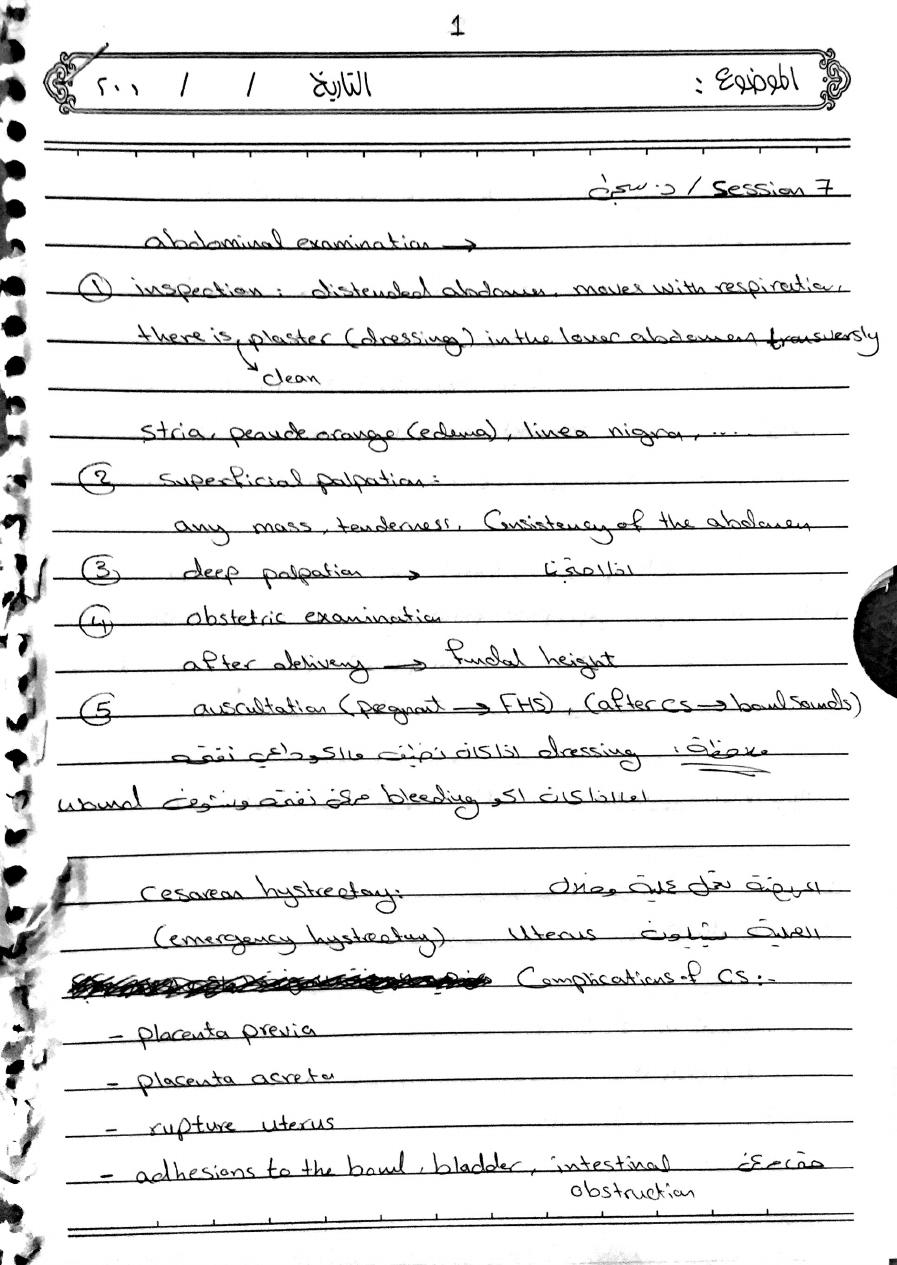 1
الموضوع : التاريخ / / ٢٠٠١
Session 7 / د.
abdominal examination →
① inspection : distended abdomen, moves with respiration,
there is plaster (dressing) in the lower abdomen transversly
clean
stria, peaude orange (edema), linea nigra, ....
② superficial palpation :
any mass, tenderness, Consistency of the abdomen
③ deep palpation →
④ obstetric examination
after delivery → fundal height
⑤ auscultation (pregnant → FHS), (after CS → bowl sounds)
ملاحظة : dressing اذا كان نضيف ماكو داعي نفتحه
اما اذا كان اكو bleeding نفتحه ونشوف wound
Cesarean hystrectomy : المريضة تدخل عملية
العملية يشيلون Uterus (emergency hystrectomy)
Complications of CS :-
- placenta previa
- placenta acreta
- rupture uterus
- adhesions to the bowl, bladder, intestinal
obstruction